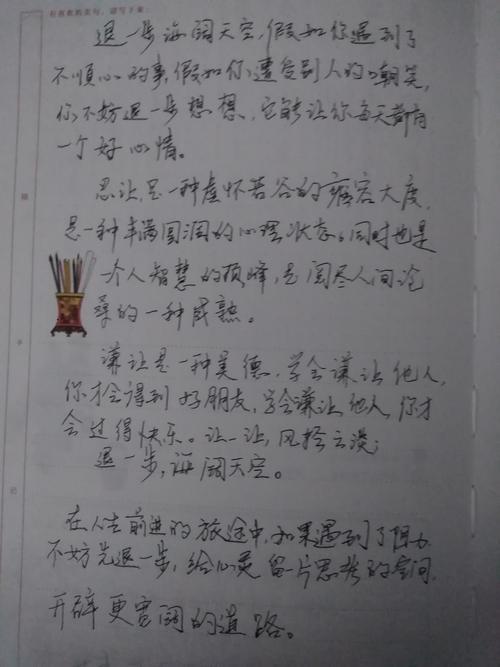 有喜欢的美句，请写下来：
退一步海阔天空，假如你遇到了
不顺心的事，假如你遭受别人的嘲笑，
你不妨退一步想想，它能让你每天都有
一个好心情。
忍让，是一种虚怀若谷的雍容大度，
是一种丰满圆润的心理状态。同时也是
一个人智慧的顶峰，是阅尽人间沧
桑的一种成熟。
谦让是一种美德，学会谦让他人，
你才会得到好朋友，学会谦让他人，你才
会过得快乐。让一让，风轻云淡；
退一步，海阔天空。
在人生前进的旅途中，如果遇到了阻力，
不妨先退一步，给心灵留一片思考的空间，
开辟更宽阔的道路。